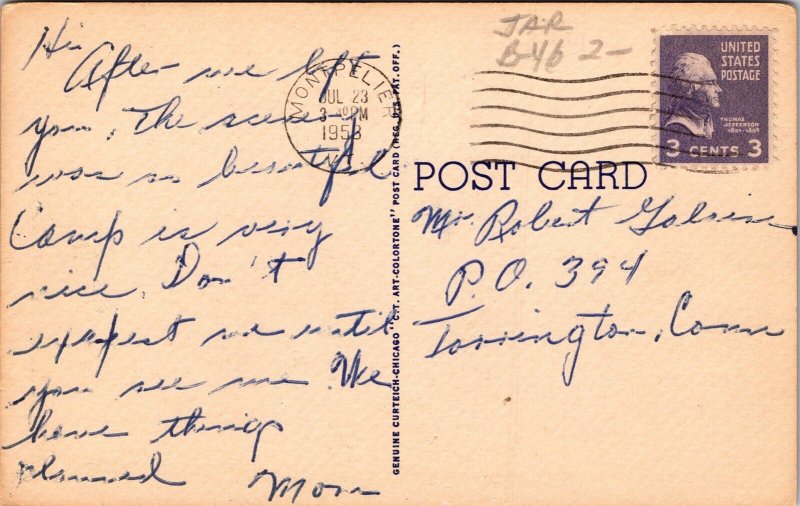 Hi
After we left
you, the scenery
was so beautiful
Camp is very
nice. Don't
expect me until
you see me. We
have things
planned
Mom
GENUINE CURTEICH-CHICAGO "C.T. ART-COLORTONE" POST CARD (REG. U.S. PAT. OFF.)
MONTPELIER
JUL 23
PM
1953
JAR
B-46 2-
UNITED
STATES
POSTAGE
THOMAS
JEFFERSON
1801-1809
3 CENTS 3
POST CARD
Mr. Robert
P.O. 394
Torrington, Conn